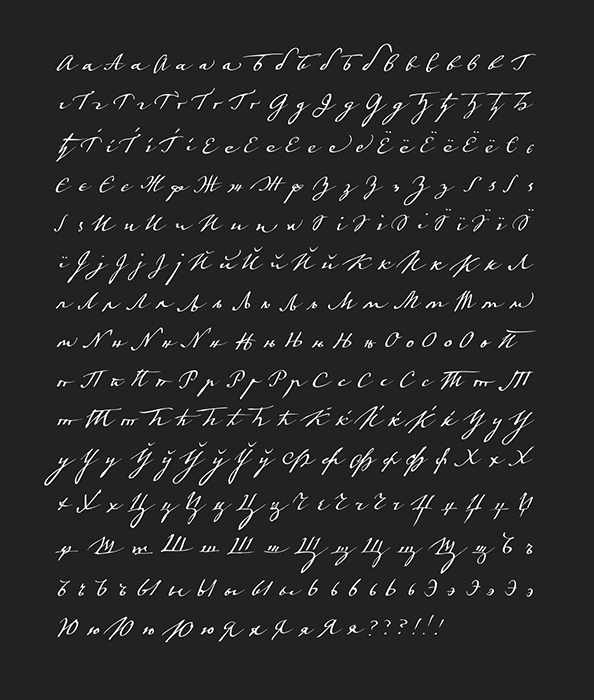 А а А а А а а а Б б Б б Б б В в В в В в Г
г Г г Г г Г г Г г Г г Д д Д д Д д Ђ ђ Ђ ђ Ђ
ђ Ѓ ѓ Ѓ ѓ Ѓ ѓ Е е Е е Е е е е Ё ё Ё ё Ё ё Є є
Є є Є є Ж ж Ж ж Ж ж З з З з З з Ѕ ѕ Ѕ ѕ
Ѕ ѕ И и И и И и и и І і І і І і Ї ї Ї ї Ї
ї Ј ј Ј ј Ј ј Й й Й й Й й К к К к К к Л
л Л л Л л Љ љ Љ љ Љ љ М м М м М м м
м Н н Н н Н н Њ њ Њ њ Њ њ О о О о О о П
п П п П п Р р Р р Р р С с С с С с Т т Т
т Т т Ћ ћ Ћ ћ Ћ ћ Ќ ќ Ќ ќ Ќ ќ У у У
у У у Ў ў Ў ў Ў ў Ф ф Ф ф Ф ф Х х Х
х Х х Ц ц Ц ц Ц ц Ч ч Ч ч Ч ч Џ џ Џ џ Џ
џ Ш ш Ш ш Ш ш Щ щ Щ щ Щ щ Ъ ъ
Ъ ъ Ъ ъ Ы ы Ы ы Ы ы Ь ь Ь ь Ь ь Э э Э э Э э
Ю ю Ю ю Ю ю Я я Я я Я я ? ? ? ! ! !